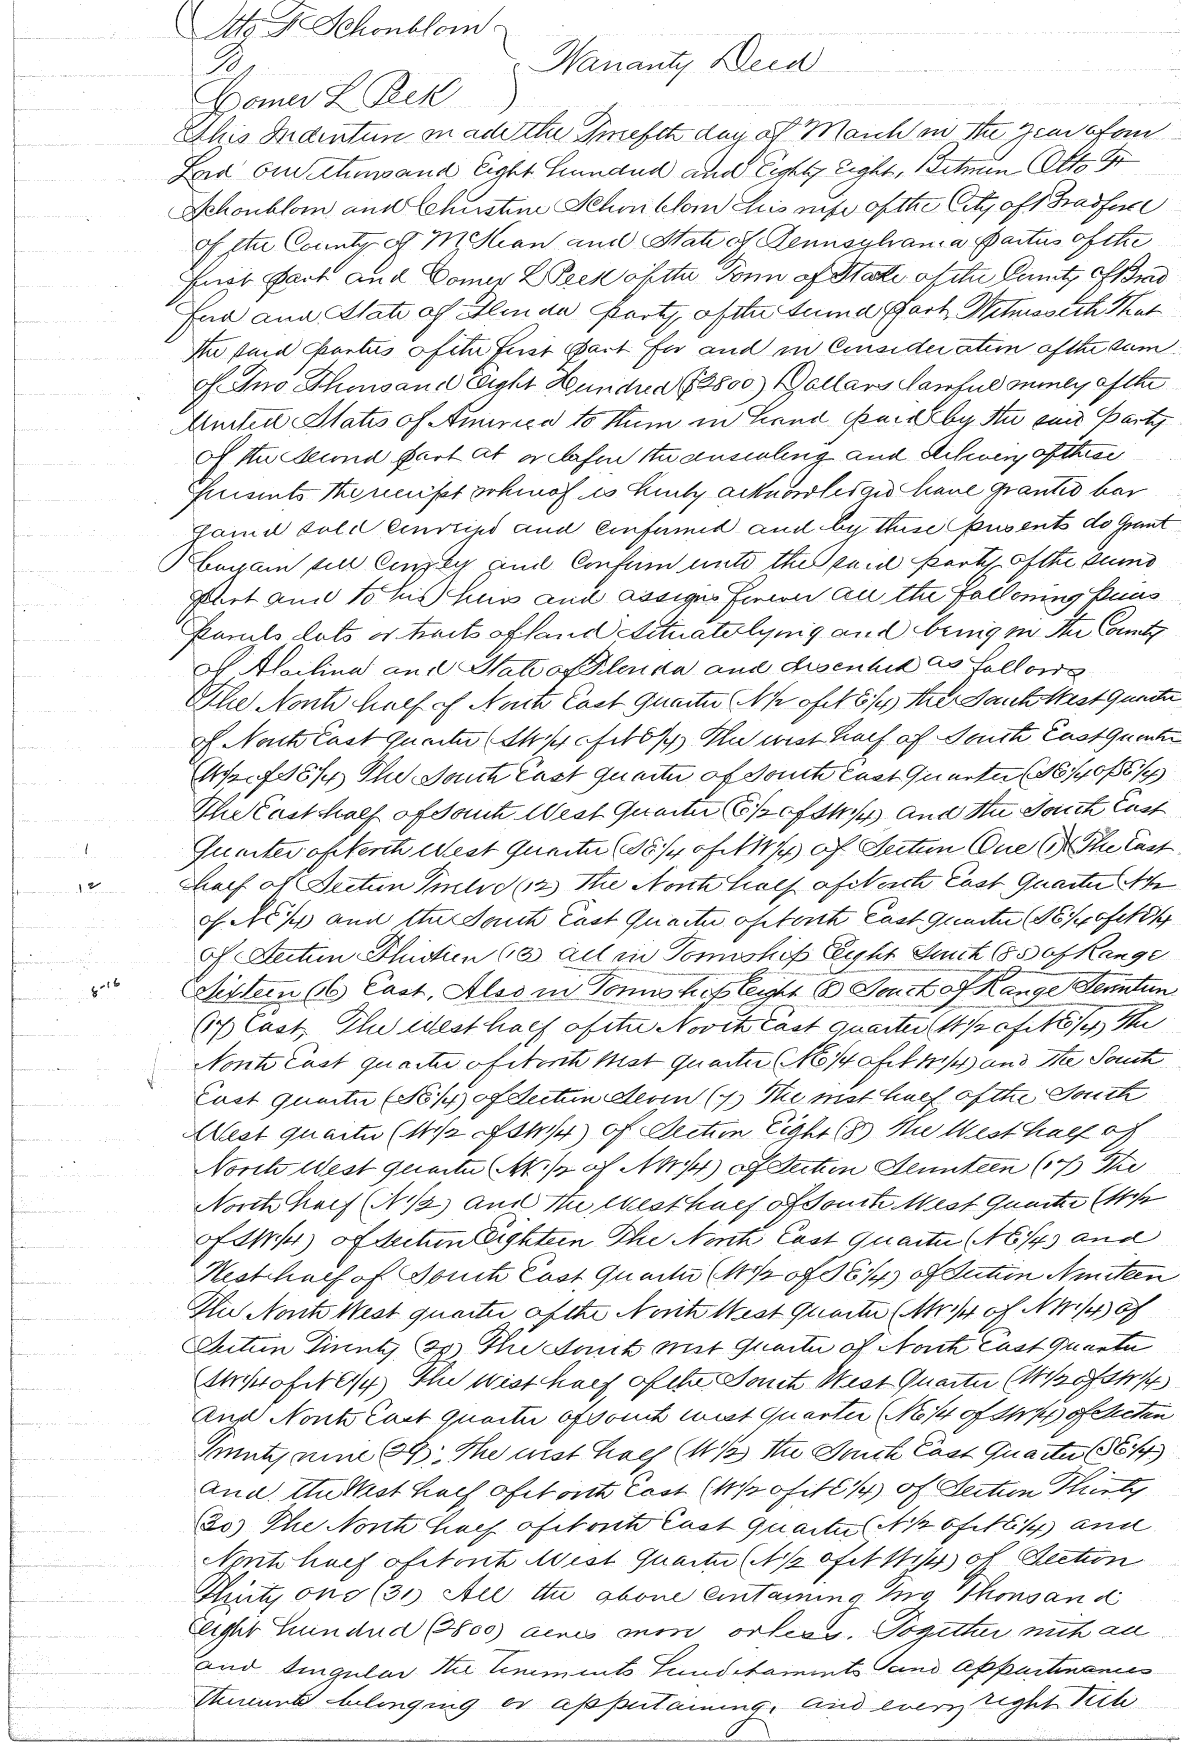 Otto F Schonblom
To Warranty Deed
Comer L Peek
This Indenture made the Twelfth day of March in the year of our
Lord one thousand Eight hundred and Eighty Eight, Between Otto F
Schonblom and Christine Schonblom his wife of the City of Bradford
of the County of McKean and State of Pennsylvania parties of the
first part and Comer L Peek of the Town of Starke of the County of Brad
ford and State of Florida party of the second part Witnesseth That
the said parties of the first part for and in Consideration of the sum
of Two Thousand Eight Hundred ($2800) Dollars lawful money of the
United States of America to them in hand paid by the said party
of the second part at or before the ensealing and delivery of these
presents the receipt whereof is hereby acknowledged have granted bar
gained sold conveyed and confirmed and by these presents do grant
bargain sell Convey and Confirm unto the said party of the second
part and to his heirs and assigns forever all the following pieces
parcels lots or tracts of land situate lying and being in the County
of Alachua and State of Florida and described as follows
The North half of North East Quarter (N½ of NE¼) the South West quarter
of North East Quarter (SW¼ of NE¼) The west half of South East quarter
(W½ of SE¼) The South East quarter of South East Quarter (SE¼ of SE¼)
The East half of South West Quarter (E½ of SW¼) and the South East
Quarter of North West Quarter (SE¼ of NW¼) of Section One (1) The East
1
half of Section Twelve (12) The North half of North East Quarter (N½
12
of NE¼) and the South East Quarter of North East quarter (SE¼ of NE¼
of Section Thirteen (13) all in Township Eight South (8S) of Range
Sixteen (16) East, Also in Township eight (8) South of Range Seventeen
8-16
(17) East, The West half of the North East quarter (W½ of NE¼) The
North East quarter of North West quarter (NE¼ of NW¼) and the South
East quarter (SE¼) of Section Seven (7) The west half of the South
West quarter (W½ of SW¼) of Section Eight (8) The West half of
North West quarter (W½ of NW¼) of Section Seventeen (17) The
North half (N½) and the West half of South West Quarter (W½
of SW¼) of Section Eighteen The North East Quarter (NE¼) and
West half of South East Quarter (W½ of SE¼) of Section Nineteen
The North West quarter of the North West Quarter (NW¼ of NW¼) of
Section Twenty (20) The South west Quarter of North East quarter
(SW¼ of NE¼) The west half of the South West Quarter (W½ of SW¼)
And North East quarter of South west quarter (NE¼ of SW¼) of Section
Twenty nine (29); The west half (W½) The South East Quarter (SE¼)
and the West half of North East (W½ of NE¼) of Section Thirty
(30) The North half of North East Quarter (N½ of NE¼) and
North half of North West Quarter (N½ of NW¼) of Section
Thirty one (31) All the above Containing Two Thousand
eight hundred (2800) acres more or less. Together with all
and singular the tenements hereditaments and appurtenances
thereunto belonging or appertaining, and every right title